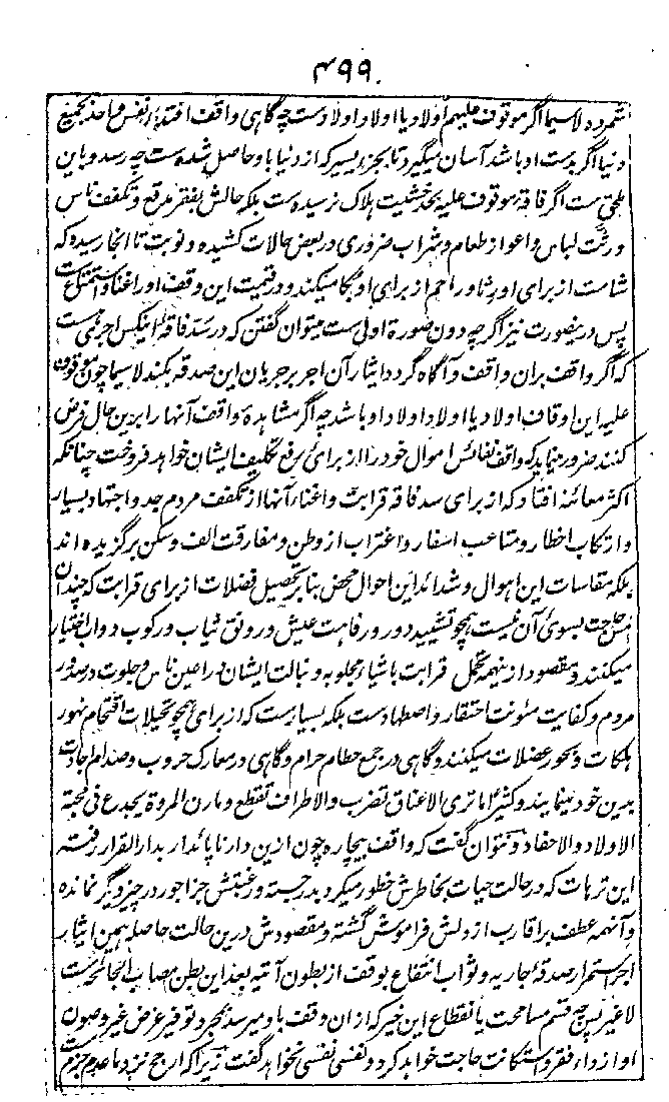 ۴۹۹
شمردد لاسیما اگر موقوف علیهم اولاد یا اولاد اولادست چه گاهی واقف افتداء نفس واحد بجمیع
دنیا اگر بدست او باشد آسان میگیرد تا بجزء یسیر که از دنیا باو حاصل شده ست چه رسد و باین
ملحق ست اگر فاقهٔ موقوف علیه بحد خشیت هلاک نرسیده ست بلکه حالش بفقر مدقع و تکفف ناس
ورثت لباس و اعواز طعام و شراب ضروری در بعض حالات کشیده و نوبت تا انجا رسیده که
شامت از برای او و راحم از برای او بکا میکند و در قیمت این وقف او را غنا و استمتاع ست
پس درینصورت نیز اگرچه دون صورة اولی ست میتوان گفتن که در سد فاقهٔ اینکس اجرهست
که اگر واقف بران واقف و آگاه گردد ایثار آن اجر بر جریان این صدقه بکند لاسیما چون موقوف
علیه این اوقاف اولاد یا اولاد اولاد او باشد چه اگر مشاهدهٔ واقف آنها را برین حال فرض
کنند ضرور مینماید که واقف نفائس اموال خود را از برای رفع تکلیف ایشان خواهد فروخت چنانکه
اکثر معائنه افتاد که از برای سد فاقه قرابت و اغنار آنها از تکفف مردم جد و اجتهاد بسیار
و ارتکاب اخطار و متاعب اسفار و اغتراب از وطن و مفارقت الف و سکن برگزیده اند
بلکه مقاسات این اهوال و شدائد این احوال محض بنا بر تحصیل فضلات از برای قرابت که چندان
حاجت بسوی آن نیست همچو تشیید دور و رفاهت عیش و رونق ثیاب و رکوب دواب اختیار
میکنند و مقصود از ینهمه تجمل قرابت باشیاء مجلوبه و نبالت ایشان در اعین ناس و جلوت در صدور
مردم و کفایت مئونت احتقار و اضطهاد ست بلکه بسیارست که از برای همچو تخیلات اقتحام نهور
هلکات و بحور عضلات میکنند و گاهی در جمع حطام حرام و گاهی در معارک حروب و صدام اجادت
بدین خود مینمایند و کثیرا ما تری الاعناق تضرب والاطراف تقطع و مارن المروة یجدع فی محبة
الاولاد والاحفاد و نتوان گفت که واقف بیچاره چون ازین دار ناپائدار بدار القرار رفته
این ترهات که در حالت حیات بخاطرش خطور میکرد بدر جسته و رغبتش جز اجور در چیز دیگر نمانده
و آنهمه عطف بر اقارب از دلش فراموش گشته و مقصودش درین حالت حاصله همین ایثار
اجر استمرار صدقهٔ جاریه و ثواب انتفاع بوقف از بطون آتیه بعد این بطن مصاب الجائحه ست
لا غیر پس چه قسم مسامحت یا نقطاع این خیر که ازان وقف باو میرسد بمجرد توفیر عرض غیر و صون
او از داء فقر و استکانت حاجت خواهد کرد و نفسی نفسی نخواهد گفت زیرا که ارجح نزد ما عدم جزم ست